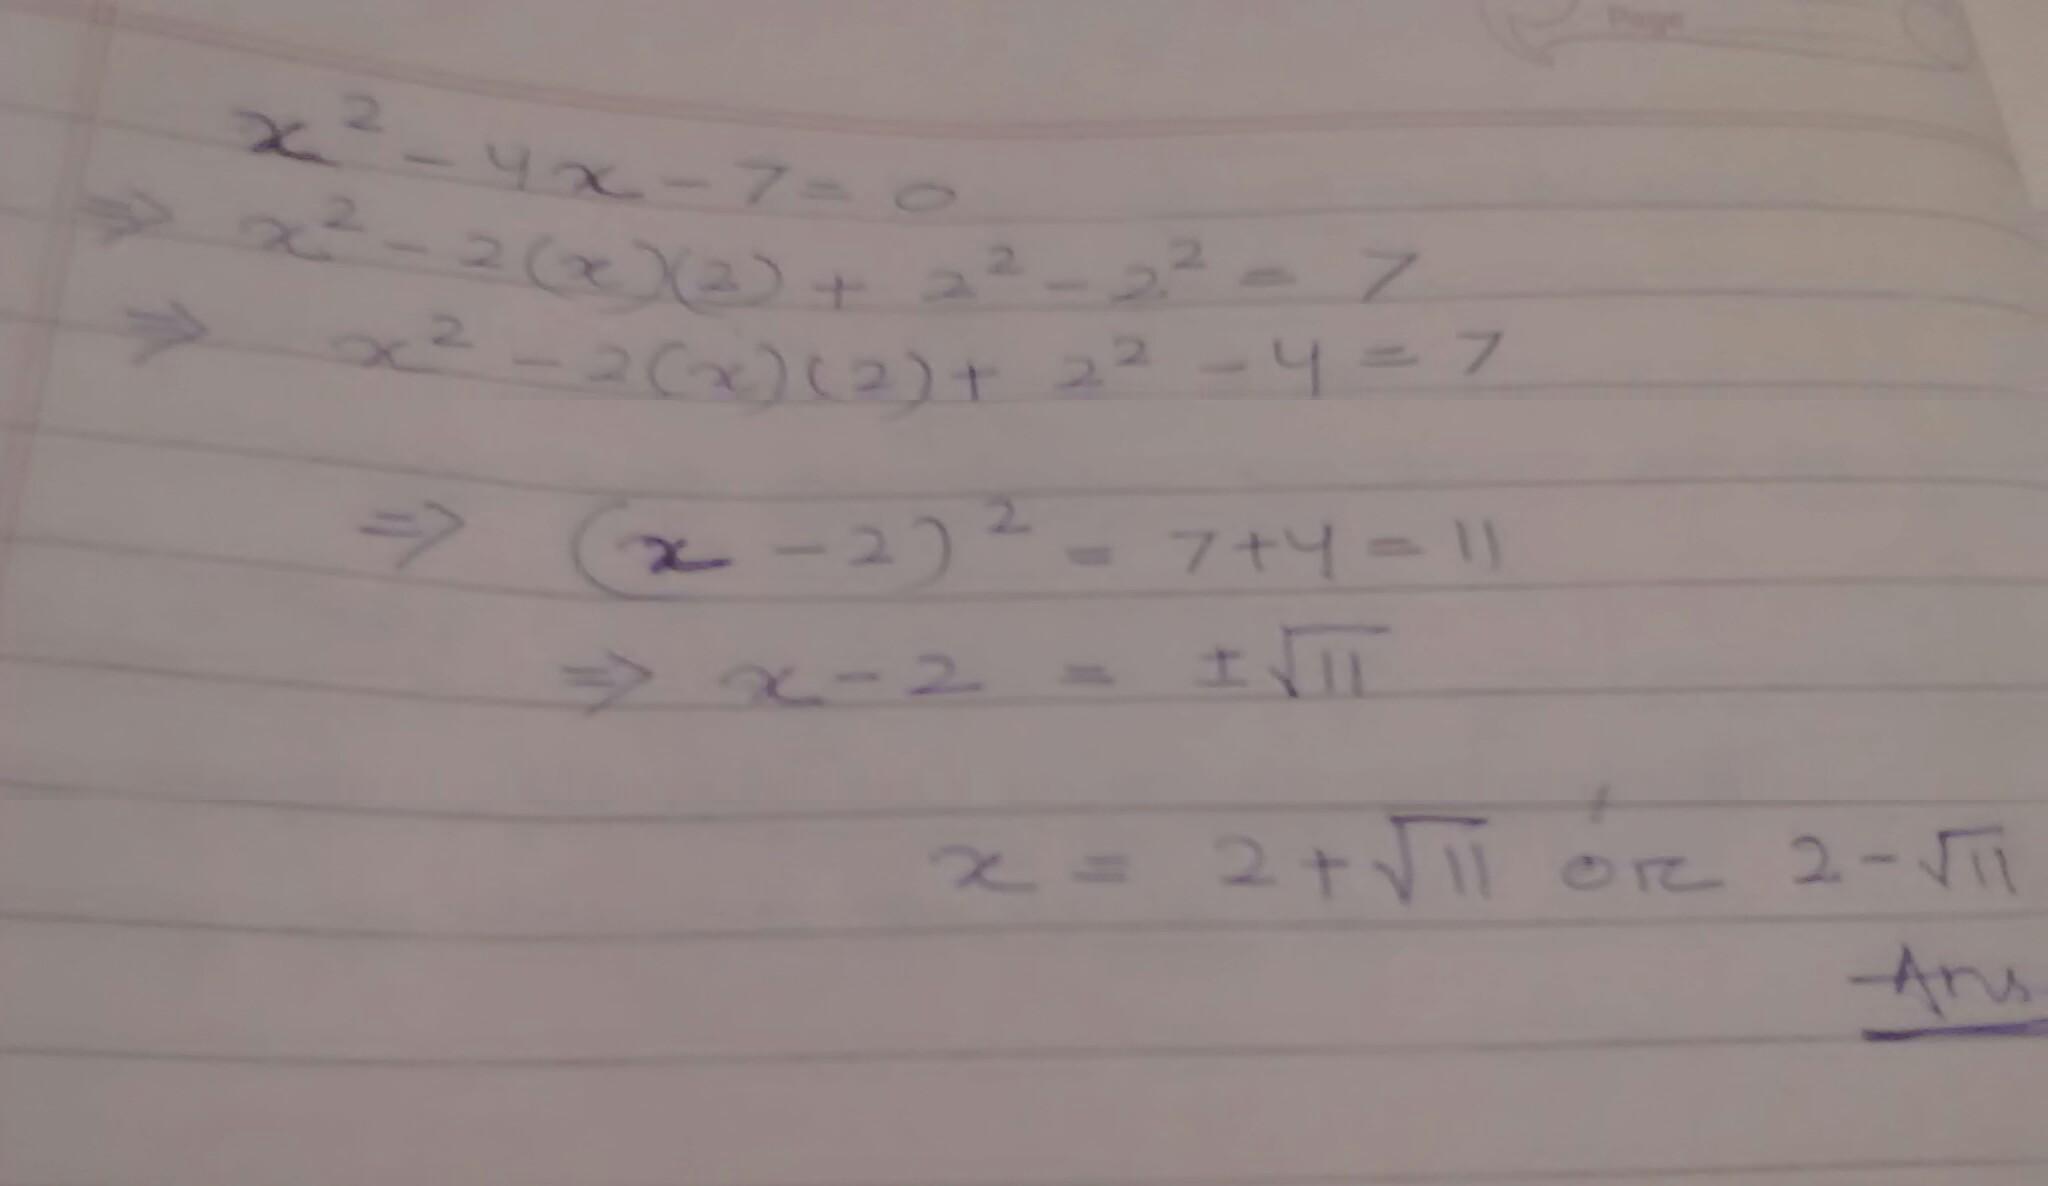 Page
x² - 4x - 7 = 0
⇒ x² - 2(x)(2) + 2² - 2² = 7
⇒ x² - 2(x)(2) + 2² - 4 = 7
⇒ (x - 2)² = 7+4 = 11
⇒ x - 2 = ±√11
x = 2 + √11 or 2 - √11
Ans